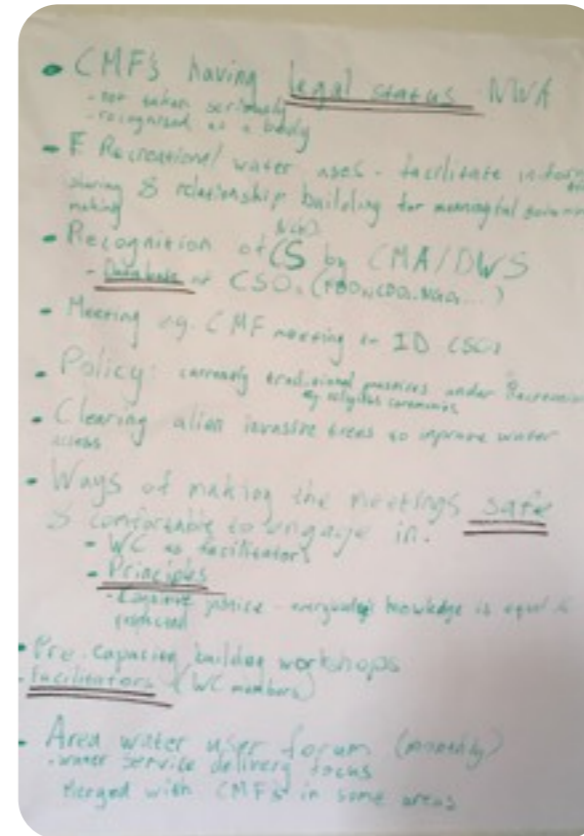 • CMF's having legal status NWA
- not taken seriously
- recognised as a body
- F. Recreational water uses - facilitate inform
sharing & relationship building for meaningful
making
- Recognition of CS by CMA/DWS
- Database of CSOs (FBOs, CBOs, NGOs ...)
- Meeting eg. CMF meeting to ID CSOs
- Policy: currently traditional practices under Recreation
eg religious ceremonies
- Clearing alien invasive trees to improve water
access
- Ways of making the meetings safe
& comfortable to engage in.
- WC as facilitators
- Principles
- Cognitive justice - everybody's knowledge is equal &
respected
• Pre capacity building workshops
- facilitators (WC members)
- Area water user forum (monthly)
- water service delivery focus
Merged with CMF's in some areas